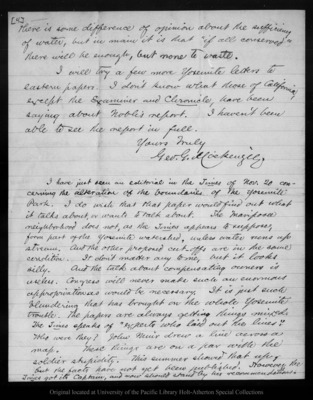 [4]
there is some difference of opinion about the sufficiency
of water, but in main it is that "if all conserved"
there will be enough, but none to waste.
I will try a few more Yosemite letters to
eastern papers. I don't know what those of California,
except the Examiner and Chronicle, have been
saying about Noble's report. I haven't been
able to see the report in full.
Yours Truly
Geo. G. Mackenzie.
I have just seen an editorial in the Times of Nov. 20 con-
cerning the alteration of the boundaries of the Yosemite
Park. I do wish that that paper would find out what
it talks about or wants to talk about. The Mariposa
neighborhood does not, as the Times appears to suppose,
form part of the Yosemite watershed, unless water runs up
stream. And the other proposed cut-offs are in the same
condition. It don't matter any to me, but it looks
silly. And the talk about compensating owners is
useless. Congress will never make such an enormous
appropriation as would be necessary. It is just such
blundering that has brought on the whole Yosemite
trouble. The papers are always getting things mixed.
The Times speaks of "experts who laid out the lines."
Who were they? John Muir drew a line across a
map. These things are on a par with the
soldier stupidity. This summer showed that up,
but the facts have not yet been published. However, the
Times got its Captain, and now should stand by his recommendations.
Original located at University of the Pacific Library Holt-Atherton Special Collections